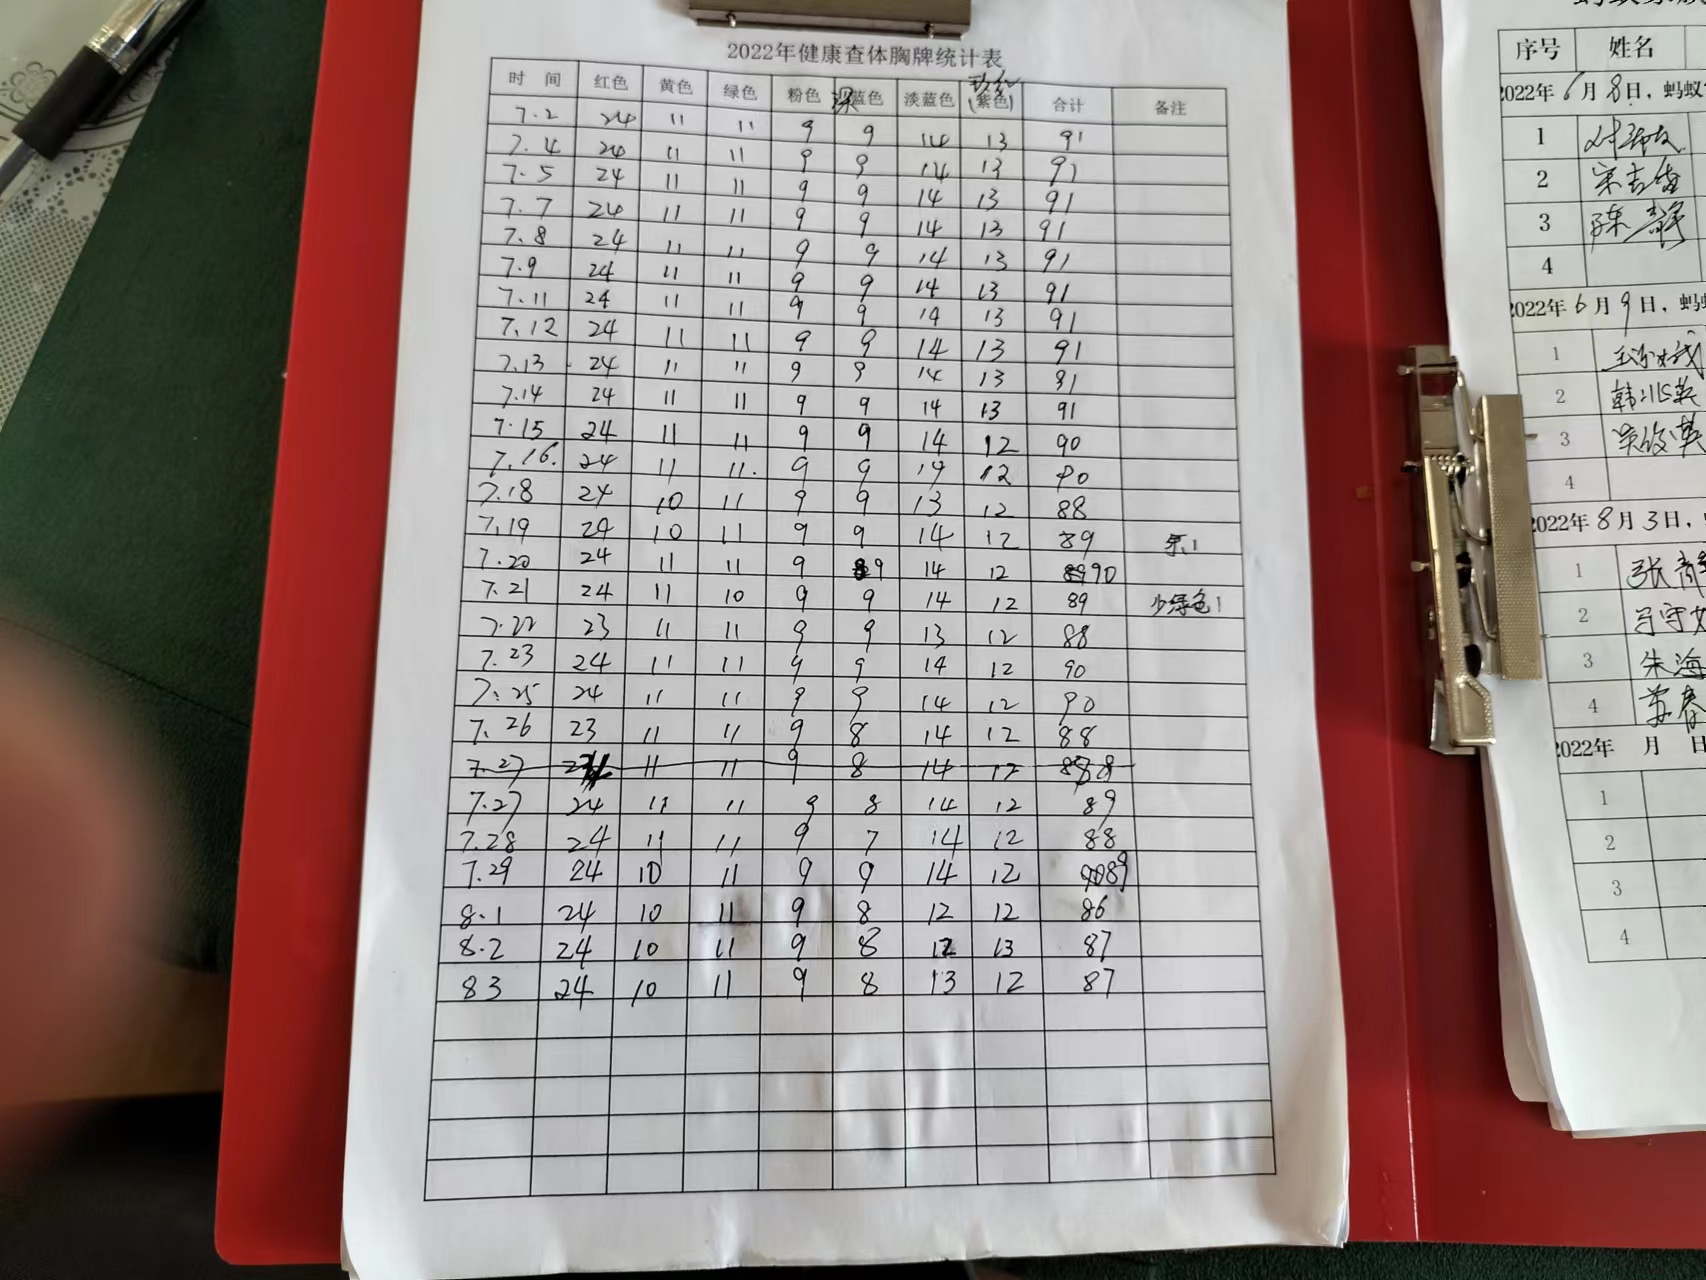 2022年健康查体胸牌统计表
时 间 红色 黄色 绿色 粉色 深蓝色 淡蓝色 玫红(紫色) 合计 备注
7.2 24 11 11 9 9 14 13 91
7.4 24 11 11 9 9 14 13 91
7.5 24 11 11 9 9 14 13 91
7.7 24 11 11 9 9 14 13 91
7.8 24 11 11 9 9 14 13 91
7.9 24 11 11 9 9 14 13 91
7.11 24 11 11 9 9 14 13 91
7.12 24 11 11 9 9 14 13 91
7.13 24 11 11 9 9 14 13 91
7.14 24 11 11 9 9 14 13 91
7.15 24 11 11 9 9 14 12 90
7.16. 24 11 11. 9 9 14 12 90
7.18 24 10 11 9 9 13 12 88
7.19 24 10 11 9 9 14 12 89
7.20 24 11 11 9 9 14 12 90
7.21 24 11 10 9 9 14 12 89 少绿色1
7.22 23 11 11 9 9 13 12 88
7.23 24 11 11 9 9 14 12 90
7.25 24 11 11 9 9 14 12 90
7.26 23 11 11 9 8 14 12 88
7.27 11 11 9 8 14 12
7.27 24 11 11 9 8 14 12 89
7.28 24 11 11 9 7 14 12 88
7.29 24 10 11 9 9 14 12 89
8.1 24 10 11 9 8 12 12 86
8.2 24 10 11 9 8 12 13 87
83 24 10 11 9 8 13 12 87
序号 姓名
2022年6月8日，蚂蚁
1
2
3 陈
4
2022年6月9日，蚂
1
2 韩
3
4
2022年8月3日，
1 张
2
3 朱海
4
2022年 月 日
1
2
3
4